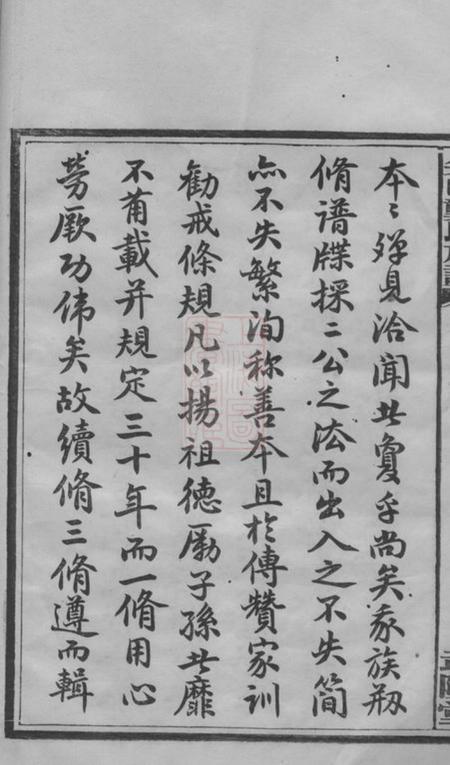 本〻殫見洽聞此夐乎尚矣我族刱
脩谱牒採二公之法而出入之不失简
亦不失繁洵称善本且於傳贊家訓
勧戒條規凡以揚祖德勵子孫者靡
不甫載并規定三十年而一脩用心
劳厥功伟矣故續脩三脩遵而輯